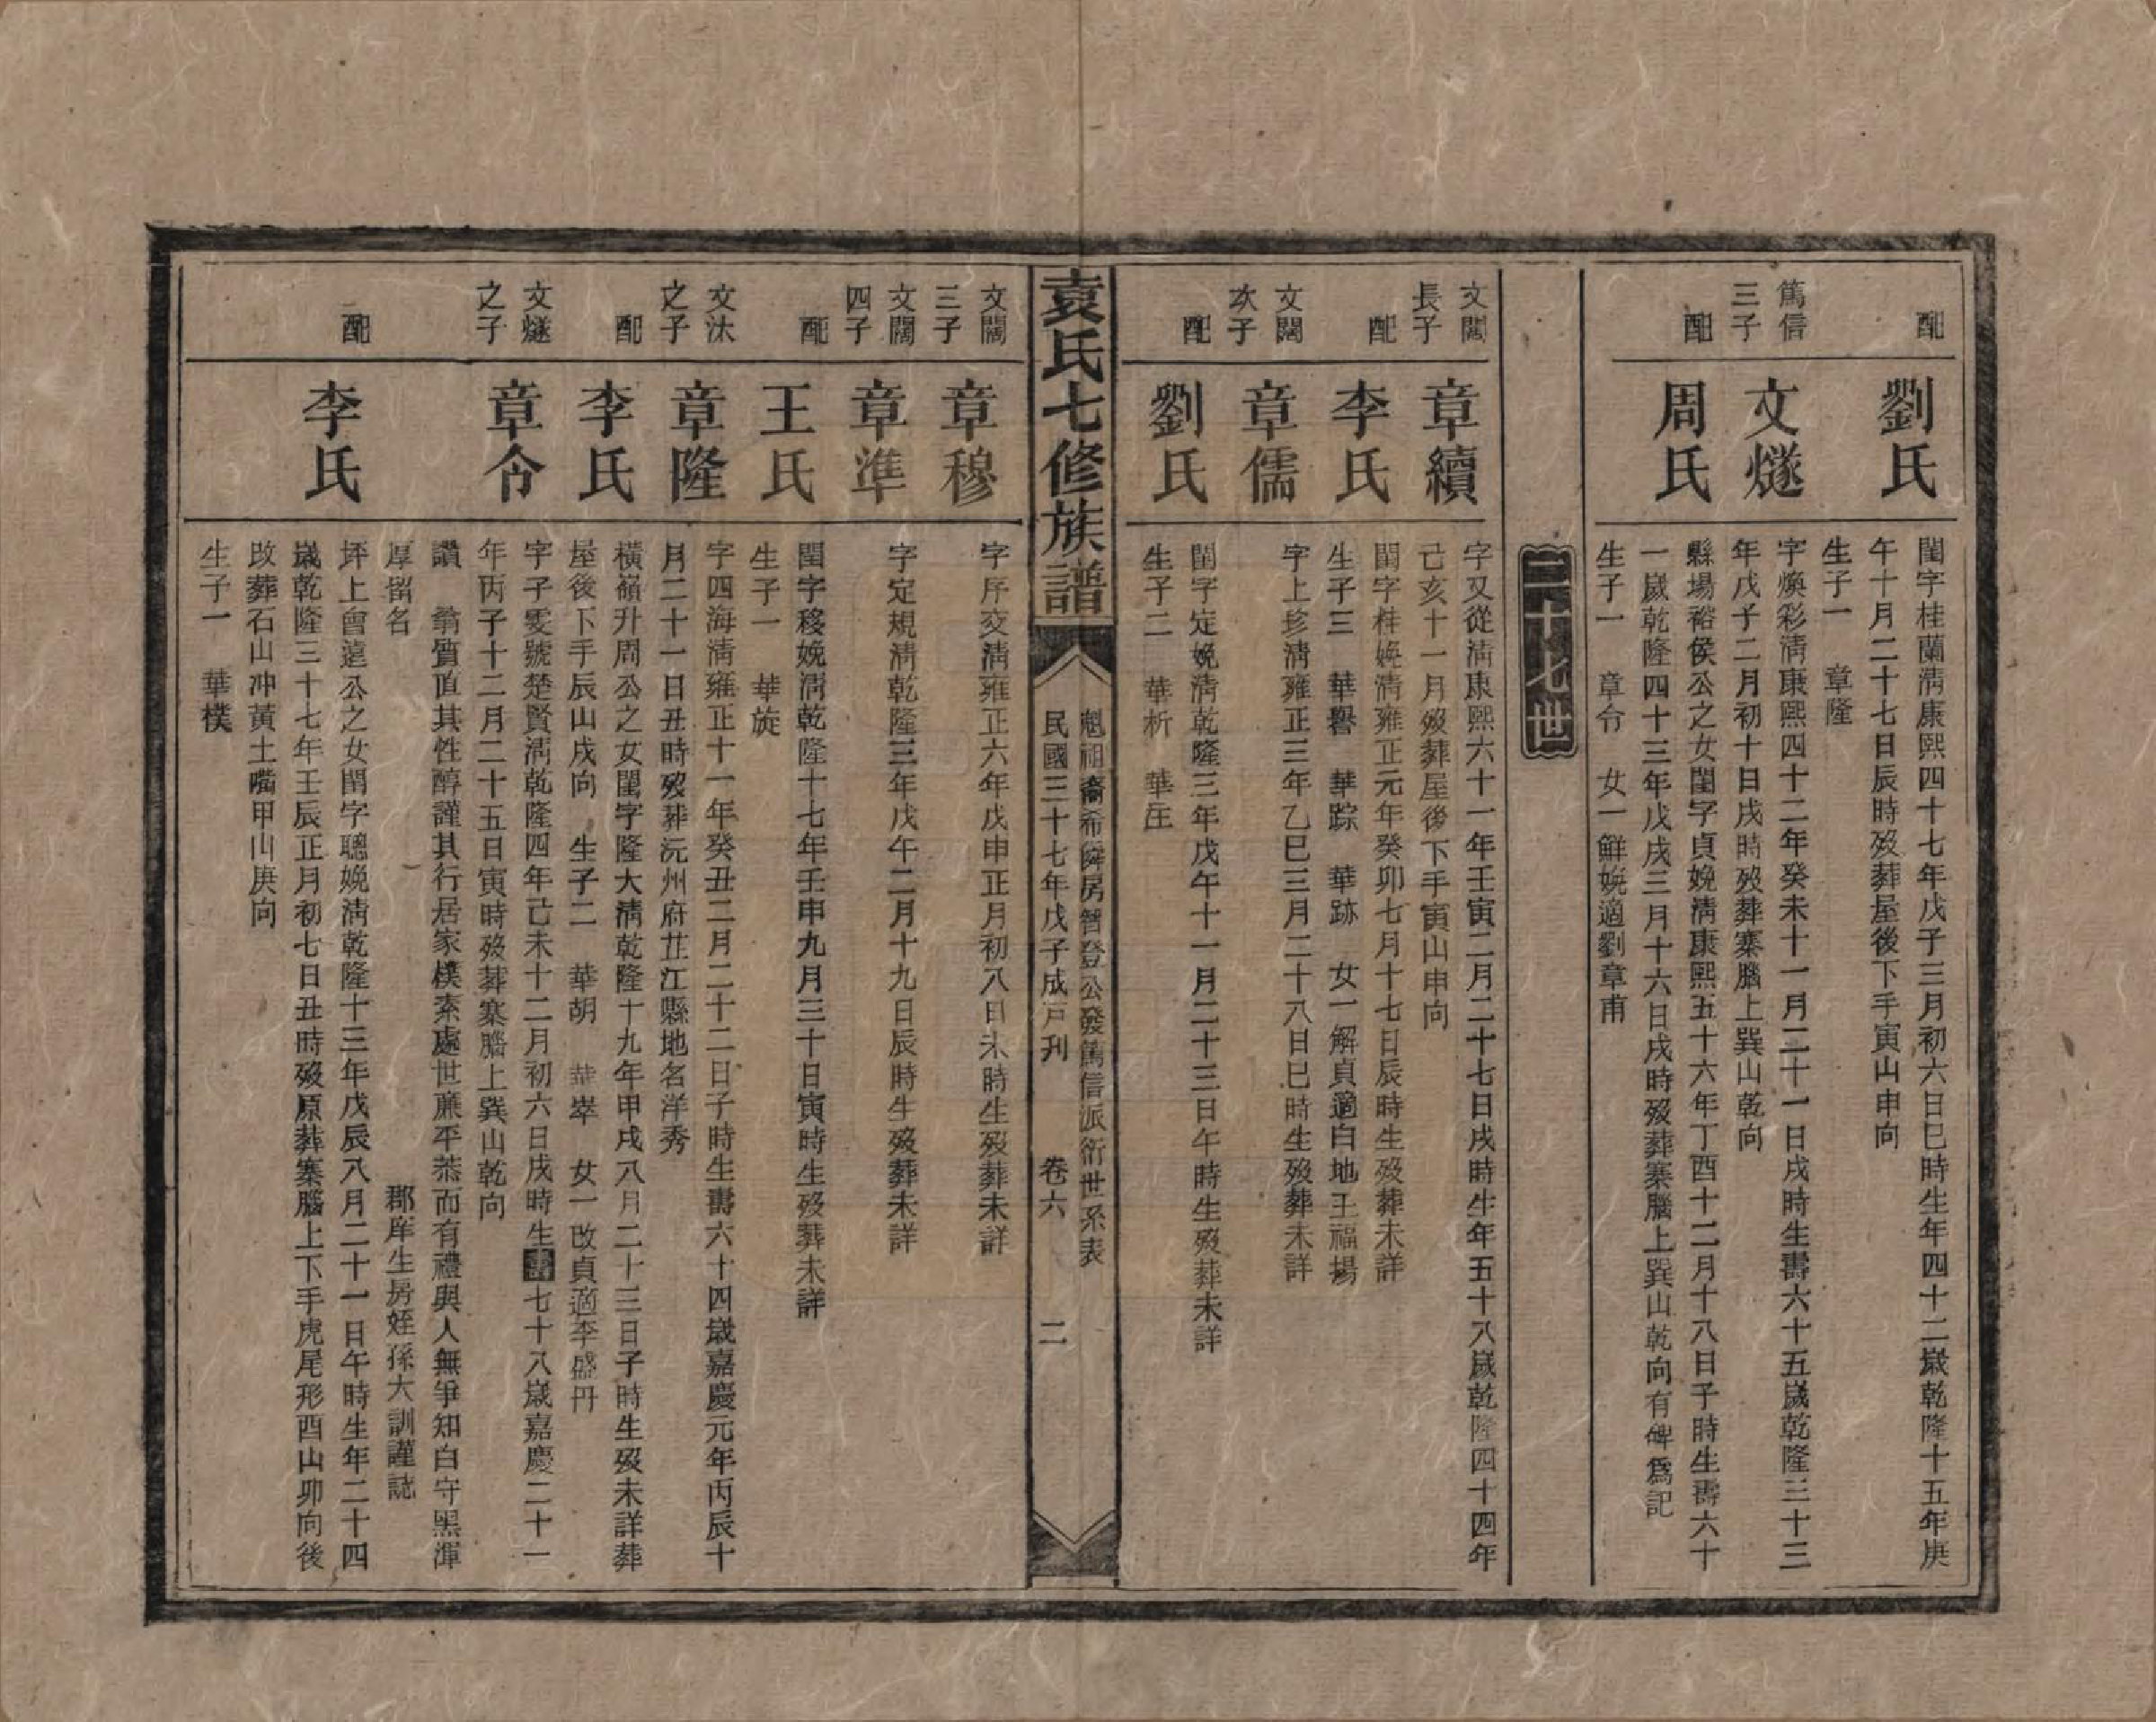 配
劉氏
閨字桂蘭清康熙四十七年戊子三月初六日巳時生年四十二歲乾隆十五年庚
午十月二十七日辰時歿葬屋後下手寅山申向
生子一　章隆
篤信
三子
文燧
字煥彩清康熙四十二年癸未十一月二十一日戌時生壽六十五歲乾隆三十三
年戊子二月初十日戌時歿葬寨腦上巽山乾向
配
周氏
縣場裕侯公之女閨字貞娩清康熙五十六年丁酉十二月十八日子時生壽六十
一歲乾隆四十三年戊戌三月十六日戌時歿葬寨腦上巽山乾向有碑為記
生子一　章令　女一鮮娩適劉章甫
二十七世
文闊
長子
章續
字又從清康熙六十一年壬寅二月二十七日戌時生年五十八歲乾隆四十四年
己亥十一月歿葬屋後下手寅山申向
配
李氏
閨字桂娩清雍正元年癸卯七月十七日辰時生歿葬未詳
生子三　華譽　華踪　華跡　女一解貞適白地王福揚
文闊
次子
章儒
字上珍清雍正三年乙巳三月二十八日巳時生歿葬未詳
配
劉氏
閨字定娩清乾隆三年戊午十一月二十三日午時生歿葬未詳
生子二　華析　華
袁氏七修族譜
魁祖裔希舜房晉登公發篤信派衍世系表
民國三十七年戊子成戶刋
卷六
二
文闊
三子
章穆
字序交清雍正六年戊申正月初八日未時生歿葬未詳
文闊
四子
章準
字定規清乾隆三年戊午二月十九日辰時生歿葬未詳
配
王氏
閨字移娩清乾隆十七年壬申九月三十日寅時生歿葬未詳
生子一　華旋
文汰
之子
章隆
字四海清雍正十一年癸丑二月二十二日子時生壽六十四歲嘉慶元年丙辰十
月二十一日丑時歿葬沅州府芷江縣地名洋秀
配
李氏
橫嶺升周公之女閨字隆大清乾隆十九年甲戌八月二十三日子時生歿未詳葬
屋後下手辰山戌向　生子二　華胡　華翠　女一改貞適李盛丹
文燧
之子
章令
字子雯號楚賢清乾隆四年己未十二月初六日戌時生壽七十八歲嘉慶二十一
年丙子十二月二十五日寅時歿葬寨腦上巽山乾向
讚　翁質直其性醇謹其行居家樸素處世廉平恭而有禮與人無爭知白守黑渾
厚留名　郡庠生房姪孫大訓謹誌
配
李氏
坪上會遠公之女閨字聰娩清乾隆十三年戊辰八月二十一日午時生年二十四
歲乾隆三十七年壬辰正月初七日丑時歿原葬寨腦上下手虎尾形酉山卯向後
改葬石山冲黃土嘴甲山庚向
生子一　華樸